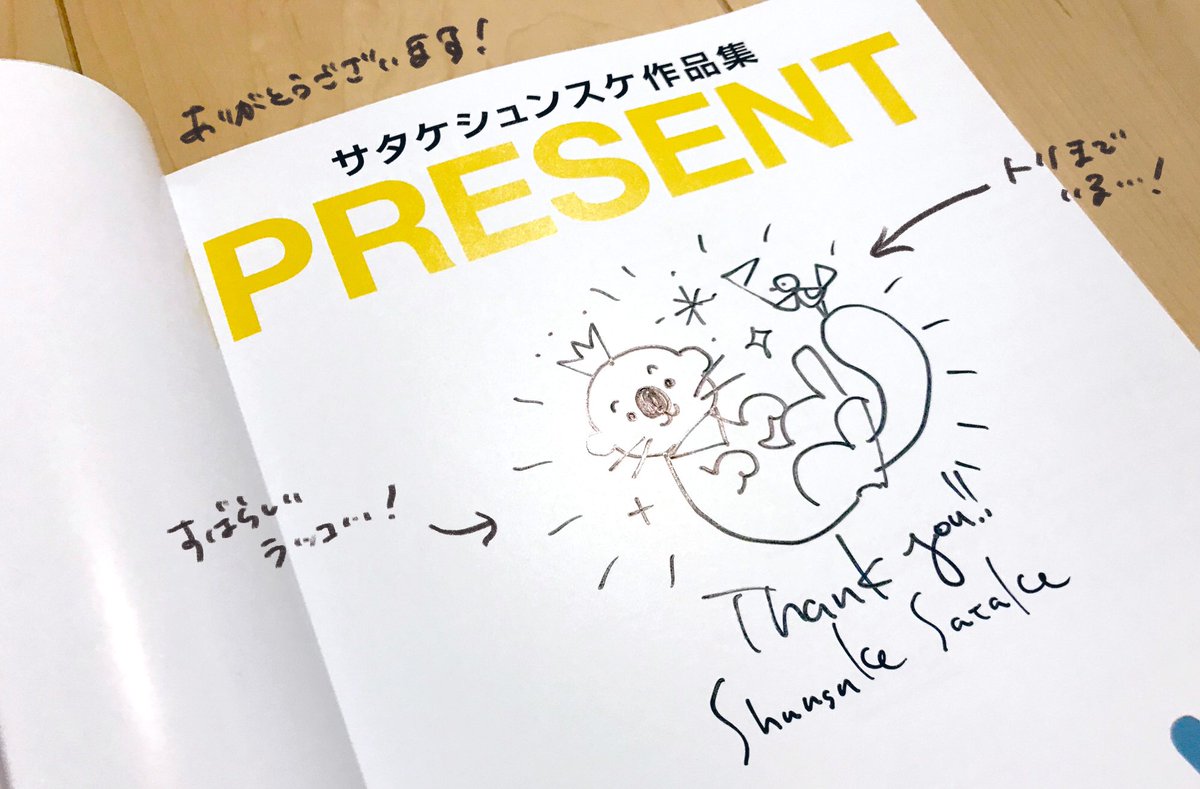 ありがとうございます!
サタケシュンスケ作品集
PRESENT
トリまで
いる…!
すばらしい
ラッコ…!
Thank you!!
Shunsuke Satake